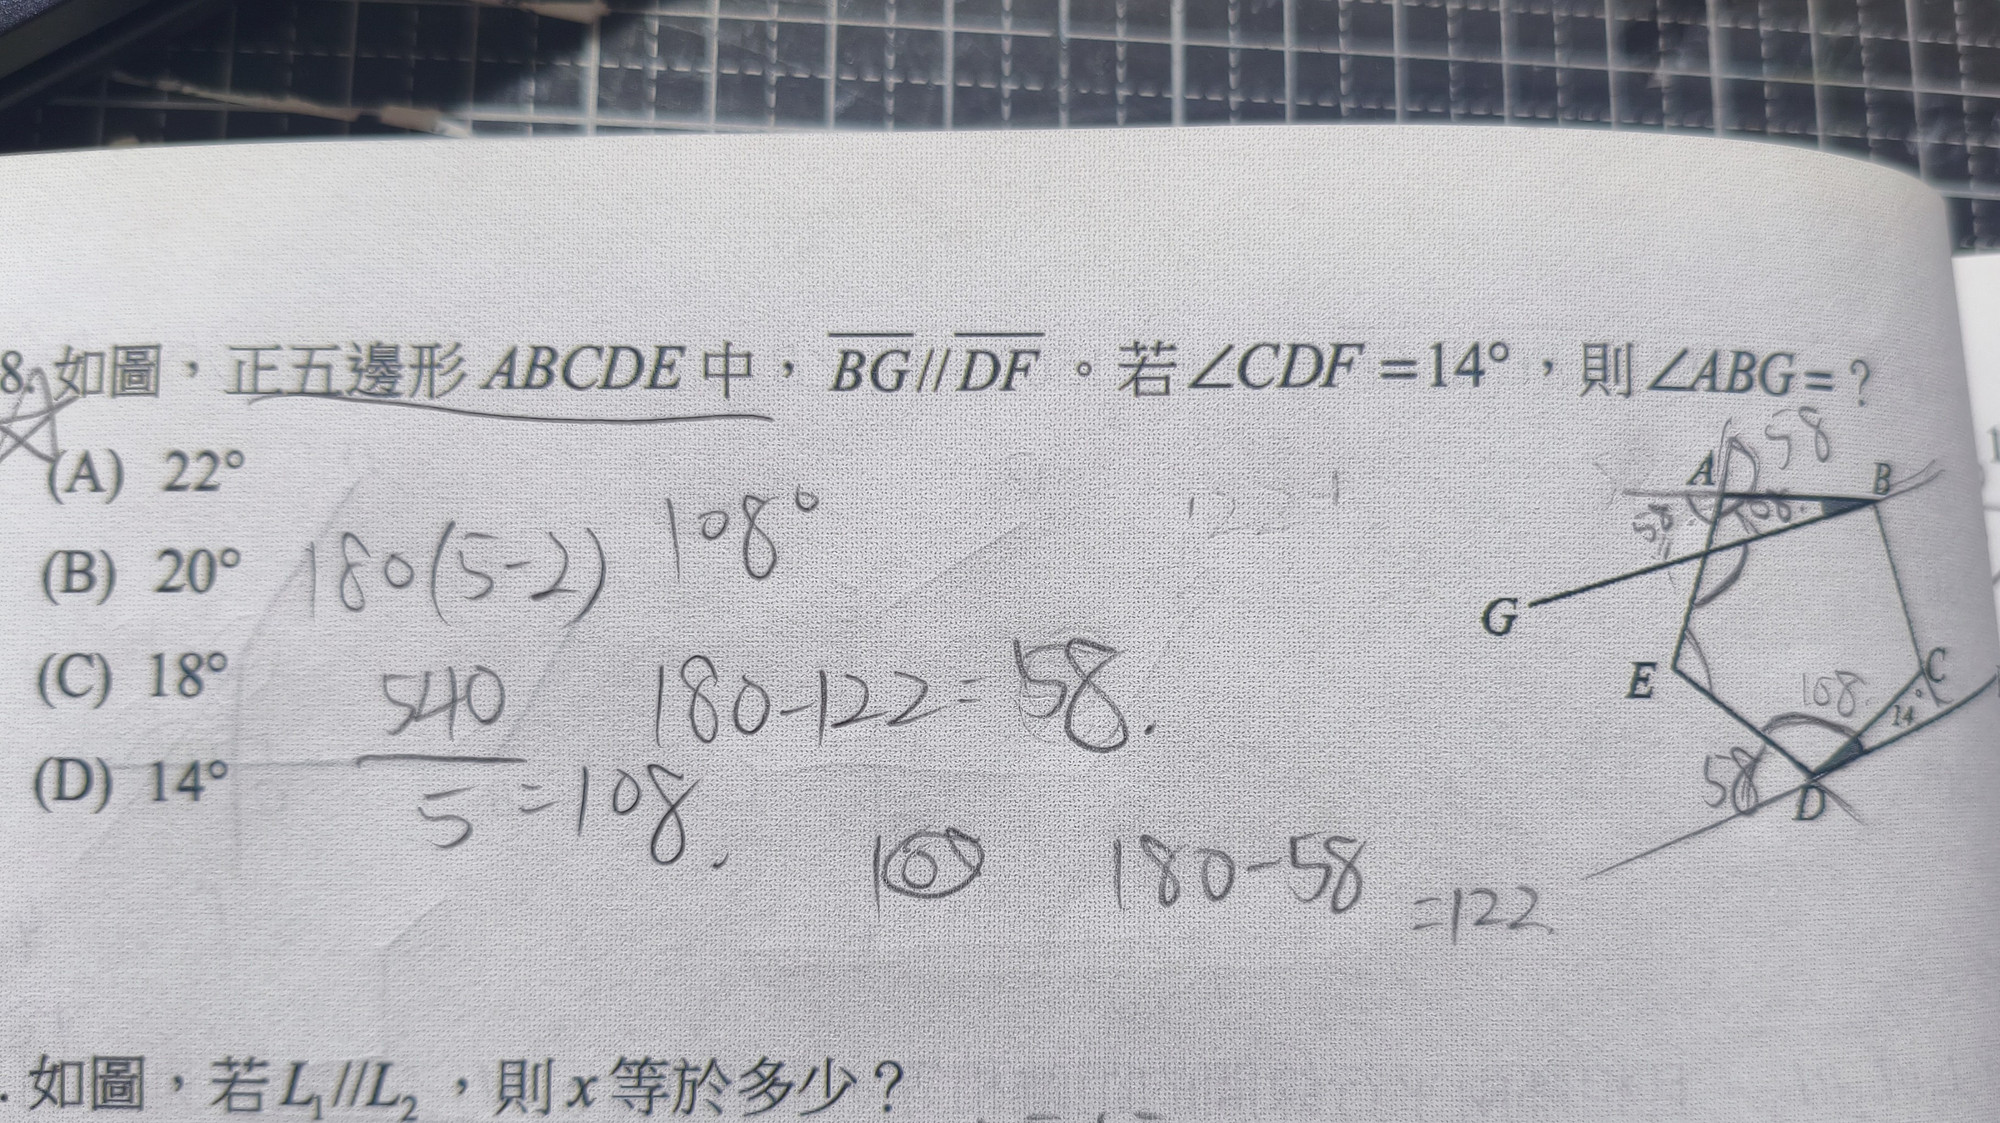 8. 如圖，正五邊形 ABCDE 中，BG // DF 。若∠CDF =14°，則∠ABG= ?
(A) 22°
(B) 20°
(C) 18°
(D) 14°
180(5-2) 108°
540
5 =108.
180-122=58.
180-58
=122
58
A
B
58
108.
G
E
C
108.
14
58
D
. 如圖，若 L₁//L₂，則 x 等於多少？